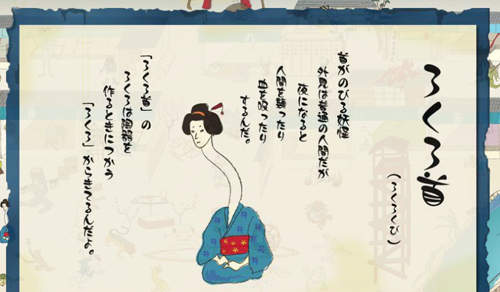 ろくろ首
(ろくろくび)
首がのびる妖怪
外見は普通の人間だが
夜になると
人間を襲ったり
血を吸ったり
するんだ。
「ろくろ首」の
ろくろは陶器を
作るときにつかう
「ろくろ」からきてるんだよ。